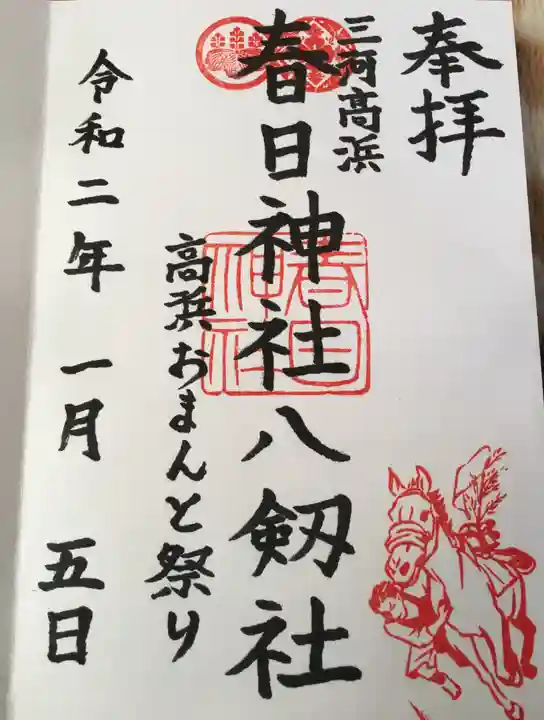 奉拝
三河高浜
春日神社八剱社
春日
神社
高浜おまんと祭り
令和二年 一月 五日